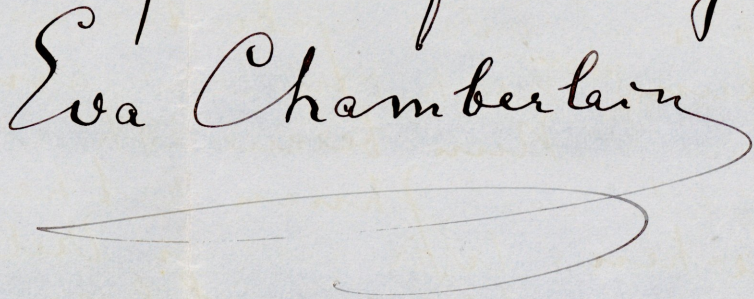 Eva Chamberlain